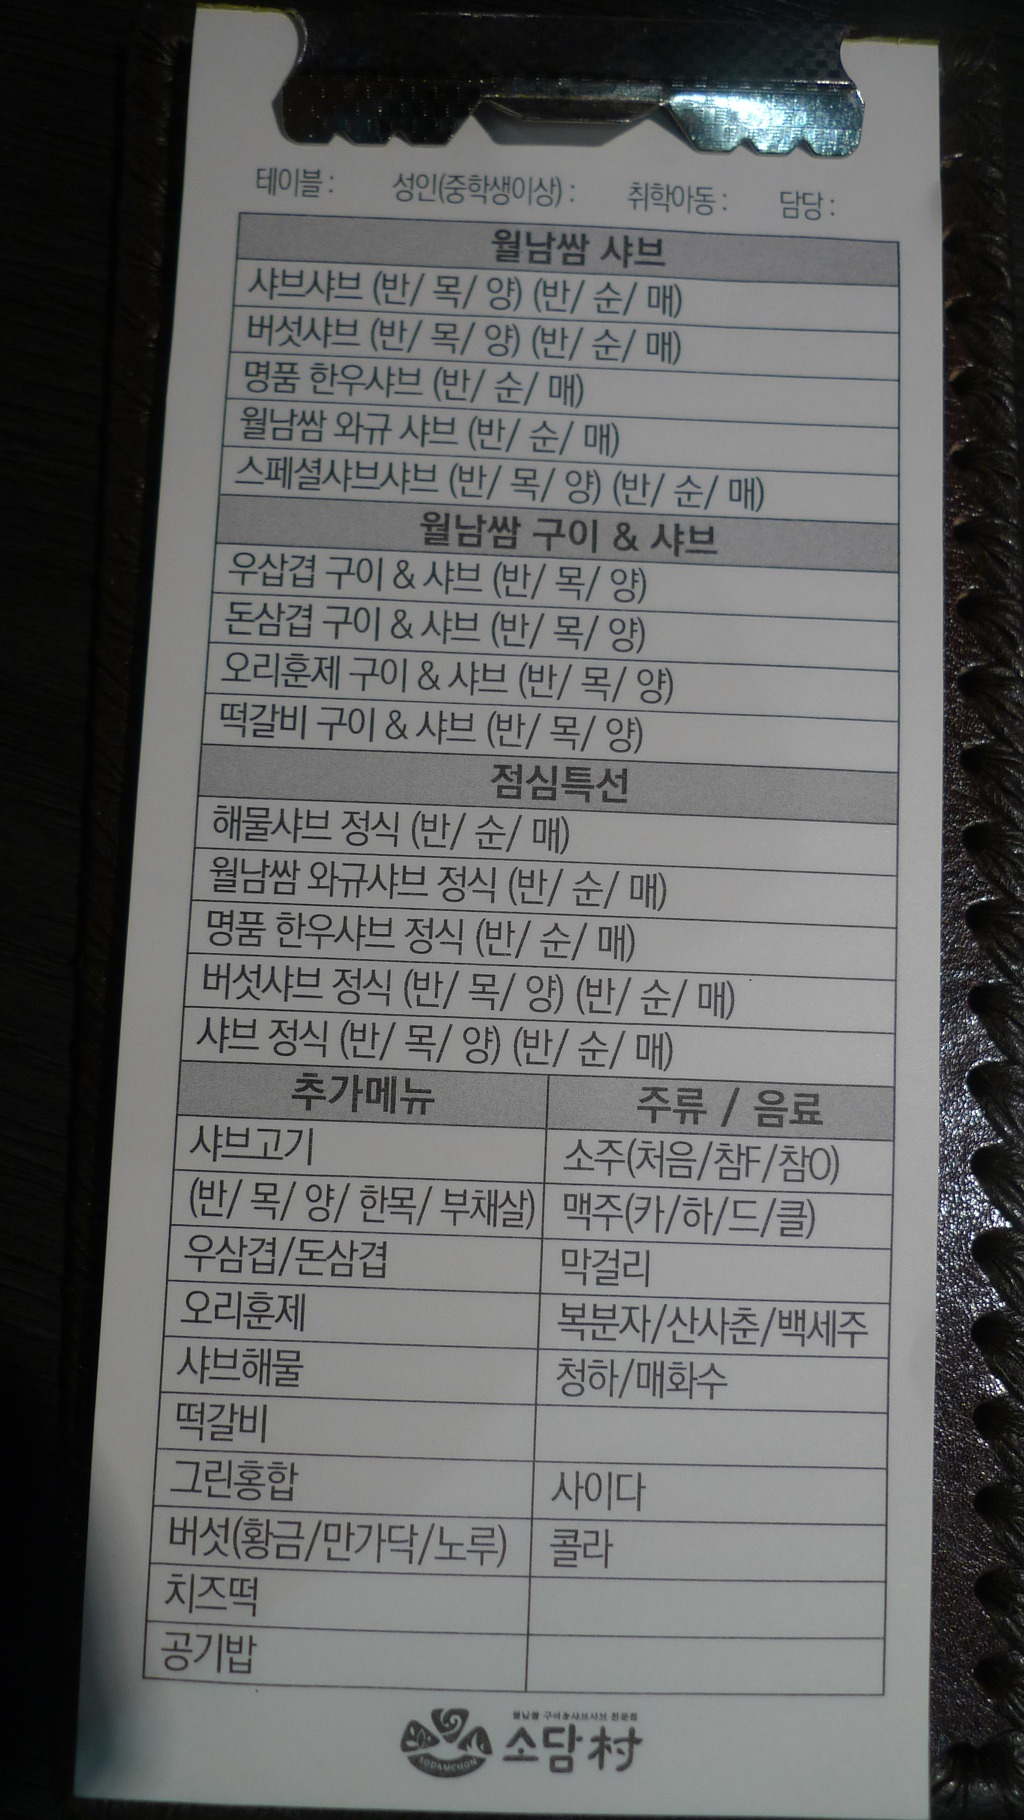 테이블 : 성인(중학생이상) : 취학아동 : 담당 :
월남쌈 샤브
샤브샤브 (반/ 목/ 양) (반/ 순/ 매)
버섯샤브 (반/ 목/ 양) (반/ 순/ 매)
명품 한우샤브 (반/ 순/ 매)
월남쌈 와규 샤브 (반/ 순/ 매)
스페셜샤브샤브 (반/ 목/ 양) (반/ 순/ 매)
월남쌈 구이 & 샤브
우삽겹 구이 & 샤브 (반/ 목/ 양)
돈삼겹 구이 & 샤브 (반/ 목/ 양)
오리훈제 구이 & 샤브 (반/ 목/ 양)
떡갈비 구이 & 샤브 (반/ 목/ 양)
점심특선
해물샤브 정식 (반/ 순/ 매)
월남쌈 와규샤브 정식 (반/ 순/ 매)
명품 한우샤브 정식 (반/ 순/ 매)
버섯샤브 정식 (반/ 목/ 양) (반/ 순/ 매)
샤브 정식 (반/ 목/ 양) (반/ 순/ 매)
추가메뉴 주류 / 음료
샤브고기 소주(처음/참F/참O)
(반/ 목/ 양/ 한목/ 부채살) 맥주(카/하/드/클)
우삼겹/돈삼겹 막걸리
오리훈제 복분자/산사춘/백세주
샤브해물 청하/매화수
떡갈비
그린홍합 사이다
버섯(황금/만가닥/노루) 콜라
치즈떡
공기밥
월남쌈 구이&샤브샤브 전문점
SODAMCHON 소담村